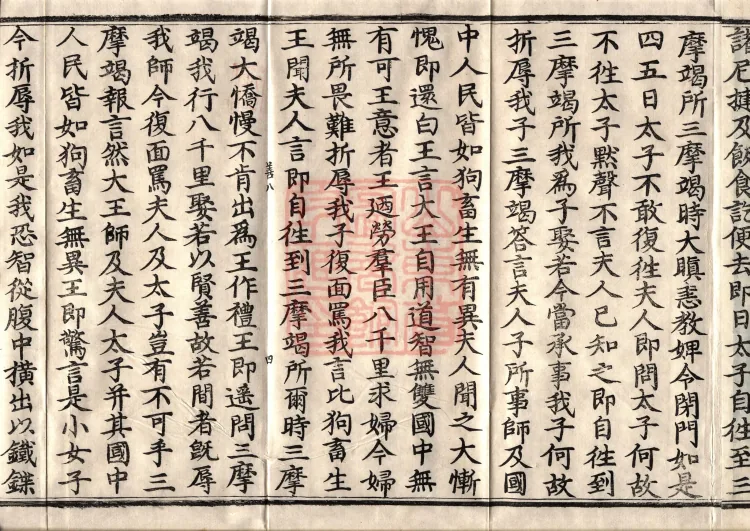 諸尼揵及飯食訖便去即日太子自徃至三
摩竭所三摩竭時大瞋恚教婢令閉門如是
四五日太子不敢復徃夫人即問太子何故
不徃太子默聲不言夫人已知之即自徃到
三摩竭所我為子娶若今當承事我子何故
折辱我子三摩竭答言夫人子所事師及國
中人民皆如狗畜生無有異夫人聞之大慚
愧即還白王言大王自用道智無雙國中無
有可王意者王廼勞羣臣八千里求婦今婦
無所畏難折辱我子復面罵我言比狗畜生
王聞夫人言即自徃到三摩竭所爾時三摩
善八
四
竭大憍慢不肯出為王作禮王即遥問三摩
竭我行八千里娶若以賢善故若間者旣辱
我師今復面罵夫人及太子豈有不可乎三
摩竭報言然大王師及夫人太子并其國中
人民皆如狗畜生無異王即驚言是小女子
今折辱我如是我恐智從腹中橫出以鐵鍱